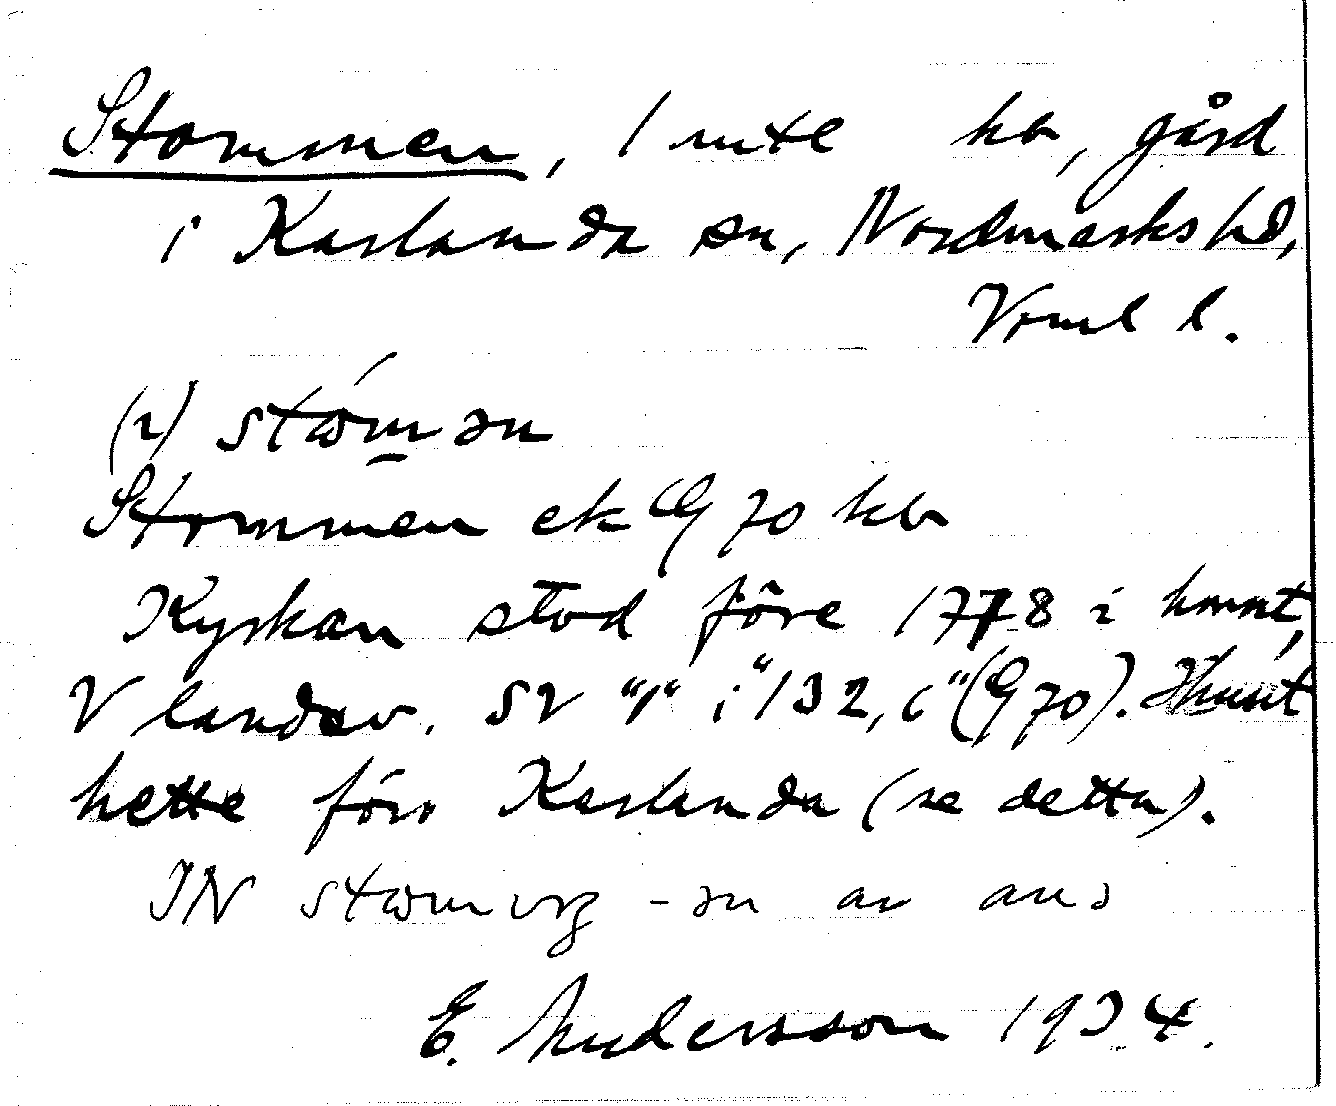 Stommen, 1 mtl kb, gård
i Karlanda sn, Nordmarks hd,
Vrml l.
(2) stɷ́m̲ən
Stommen ek G 70 kb
Kyrkan stod före 1778 i hmnt,
V landsv. SV "1" i "132,6" (G 70). Hmnt
hette förr Karlanda (se detta).
IN stɷmıŋ -ən av ans
E. Andersson 1934.